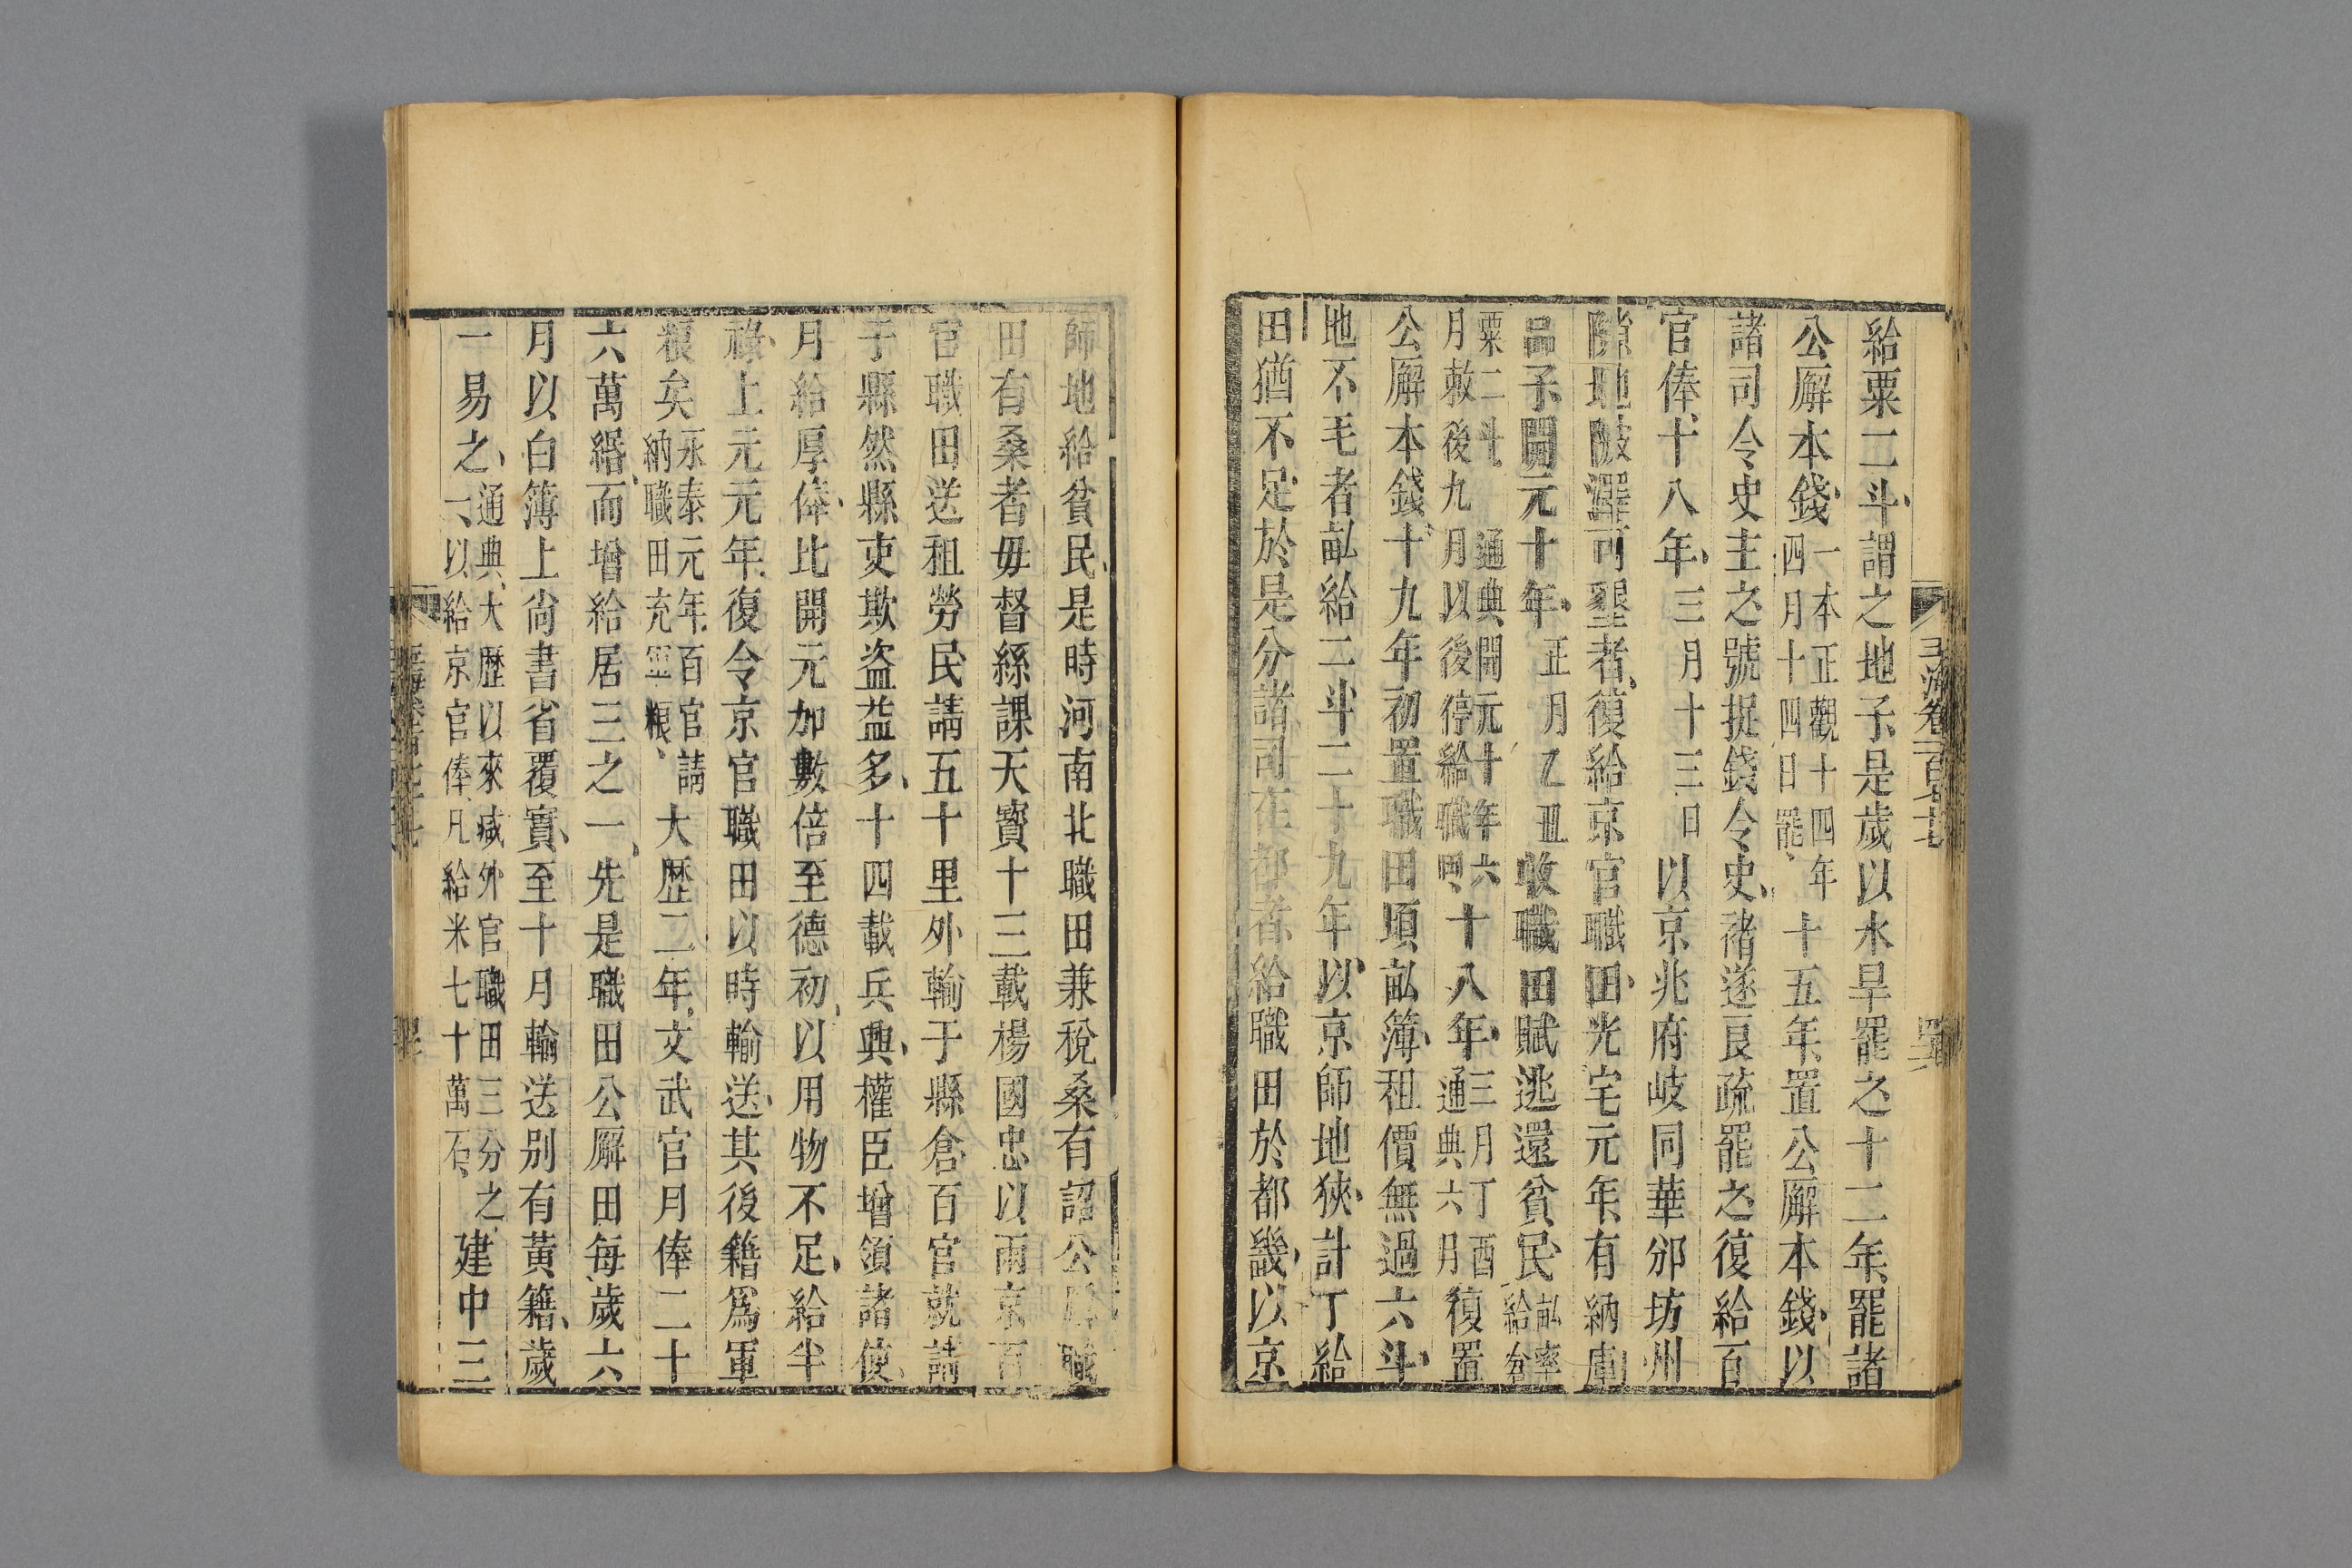 給粟二斗謂之地子是歲以水旱罷之十二年罷諸
公廨本錢一本正觀十四年四月十四日罷十五年置公廨本錢以
諸司令史主之號捉錢令史褚遂良疏罷之復給百
官俸十八年三月十三日以京兆府岐同華邠坊州
隙地陂澤可墾者復給京官職田光宅元年有納庫
品子開元十年正月乙丑收職田賦逃還貧民畝率給倉
粟二斗通典開元十年六月敕後九月以後停給職田十八年三月丁酉通典六月復置
公廨本錢十九年初置職田頃畝簿租價無過六斗
地不毛者畝給二斗二十九年以京師地狹計丁給
田猶不足於是分諸司在都者給職田於都畿以京
師地給貧民是時河南北職田兼稅桑有詔公廨職
田有桑者毋督絲課天寶十三載楊國忠以兩京百
官職田送租勞民請五十里外輸于縣倉百官就請
于縣然縣吏欺盜益多十四載兵興權臣增領諸使
月給厚俸比開元加數倍至德初以用物不足給半
祿上元元年復令京官職田以時輸送其後籍爲軍
糧矣永泰元年百官請納職田充軍糧大歷二年文武官月俸二十
六萬緡而增給居三之一先是職田公廨田每歲六
月以白簿上尚書省覆實至十月輸送别有黃籍歲
一易之通典大歷以來減外官職田三分之一以給京官俸凡給米七十萬石建中三
玉海卷一百七十七